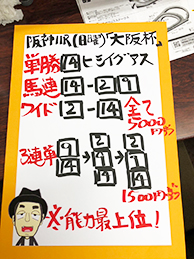 阪神11R(日曜)「大阪杯」
単勝 14 ヒシイグアス
馬連 14-2 9
ワイド 2-14 全て
5000円ヅツ
3連単 9 14 → 2 9 14 → 2 9 14
1500円ヅツ
※能力最上位!